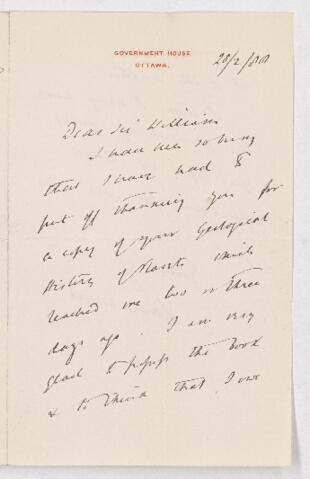 GOVERNMENT HOUSE.
OTTAWA.
28/2/88
Dear Sir William
I have been so busy
that I have had to
put off thanking you for
a copy of your Geological
History of Plants which
reached me two or three
days ago. I am very
glad to possess the book
& to think that I owe